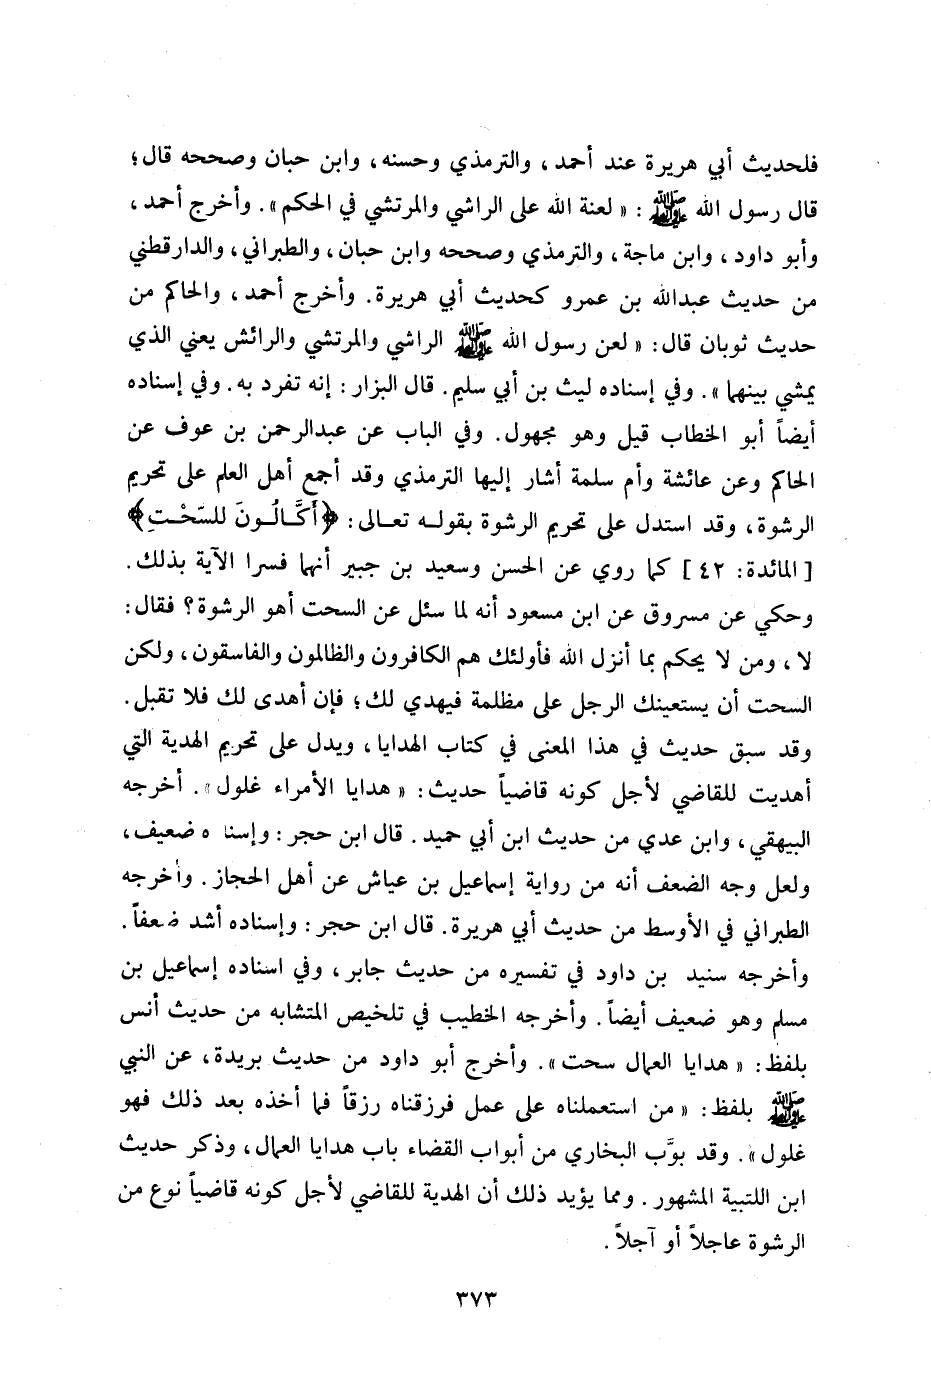 فلحديث أبي هريرة عند أحمد ، والترمذي وحسنه ، وابن حبان وصححه قال ؛
قال رسول الله ﷺ : « لعنة الله على الراشي والمرتشي في الحكم » . وأخرج أحمد ،
وأبو داود ، وابن ماجة ، والترمذي وصححه وابن حبان ، والطبراني ، والدارقطني
من حديث عبدالله بن عمرو كحديث أبي هريرة . وأخرج أحمد ، والحاكم من
حديث ثوبان قال : « لعن رسول الله ﷺ الراشي والمرتشي والرائش يعني الذي
يمشي بينهما » . وفي إسناده ليث بن أبي سليم . قال البزار : إنه تفرد به . وفي إسناده
أيضاً أبو الخطاب قيل وهو مجهول . وفي الباب عن عبدالرحمن بن عوف عن
الحاكم وعن عائشة وأم سلمة أشار إليها الترمذي وقد أجمع أهل العلم على تحريم
الرشوة ، وقد استدل على تحريم الرشوة بقوله تعالى : ﴿أَكَّالُونَ للسَحْتِ﴾
[ المائدة : ٤٢ ] كما روي عن الحسن وسعيد بن جبير أنهما فسرا الآية بذلك .
وحكي عن مسروق عن ابن مسعود أنه لما سئل عن السحت أهو الرشوة ؟ فقال :
لا ، ومن لا يحكم بما أنزل الله فأولئك هم الكافرون والظالمون والفاسقون ، ولكن
السحت أن يستعينك الرجل على مظلمة فيهدي لك ؛ فإن أهدى لك فلا تقبل .
وقد سبق حديث في هذا المعنى في كتاب الهدايا ، ويدل على تحريم الهدية التي
أهديت للقاضي لأجل كونه قاضياً حديث : « هدايا الأمراء غلول » . أخرجه
البيهقي ، وابن عدي من حديث ابن أبي حميد . قال ابن حجر : وإسنا ه ضعيف ،
ولعل وجه الضعف أنه من رواية إسماعيل بن عياش عن أهل الحجاز . وأخرجه
الطبراني في الأوسط من حديث أبي هريرة . قال ابن حجر : وإسناده أشد ضعفاً .
وأخرجه سنيد بن داود في تفسيره من حديث جابر ، وفي اسناده إسماعيل بن
مسلم وهو ضعيف أيضاً . وأخرجه الخطيب في تلخيص المتشابه من حديث أنس
بلفظ : « هدايا العمال سحت » . وأخرج أبو داود من حديث بريدة ، عن النبي
ﷺ بلفظ : « من استعملناه على عمل فرزقناه رزقاً فما أخذه بعد ذلك فهو
غلول » . وقد بوَّب البخاري من أبواب القضاء باب هدايا العمال ، وذكر حديث
ابن اللتبية المشهور . ومما يؤيد ذلك أن الهدية للقاضي لأجل كونه قاضياً نوع من
الرشوة عاجلاً أو آجلاً .
٣٧٣